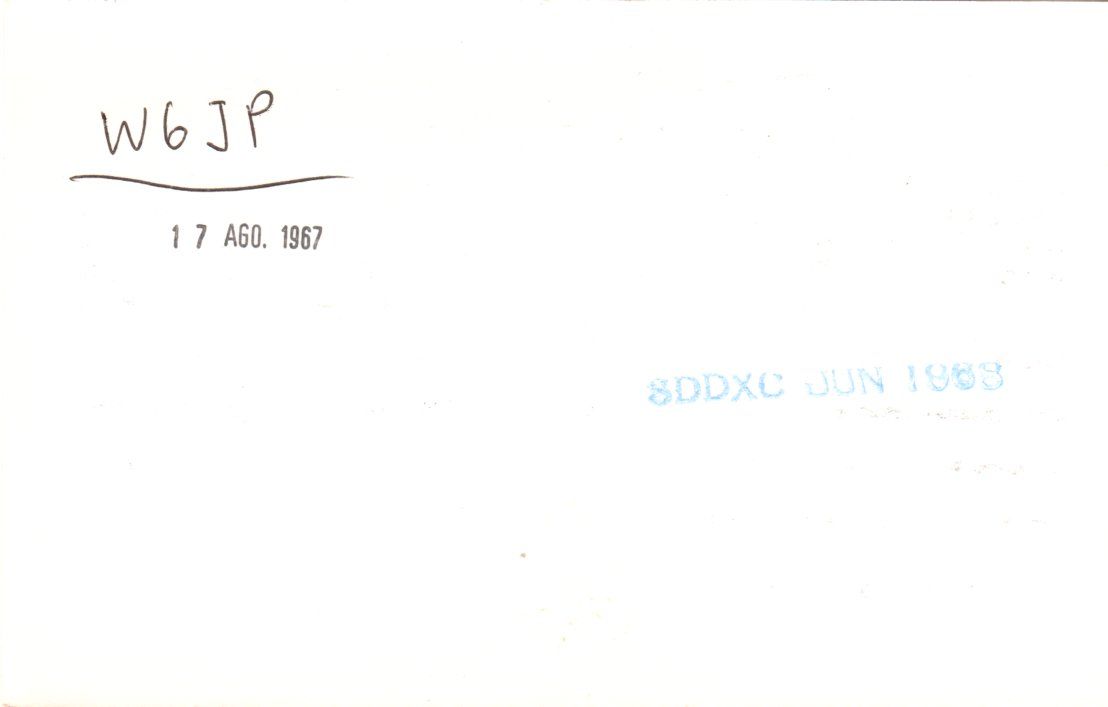 W6JP
17 AGO. 1967
SDDXC JUN 1968